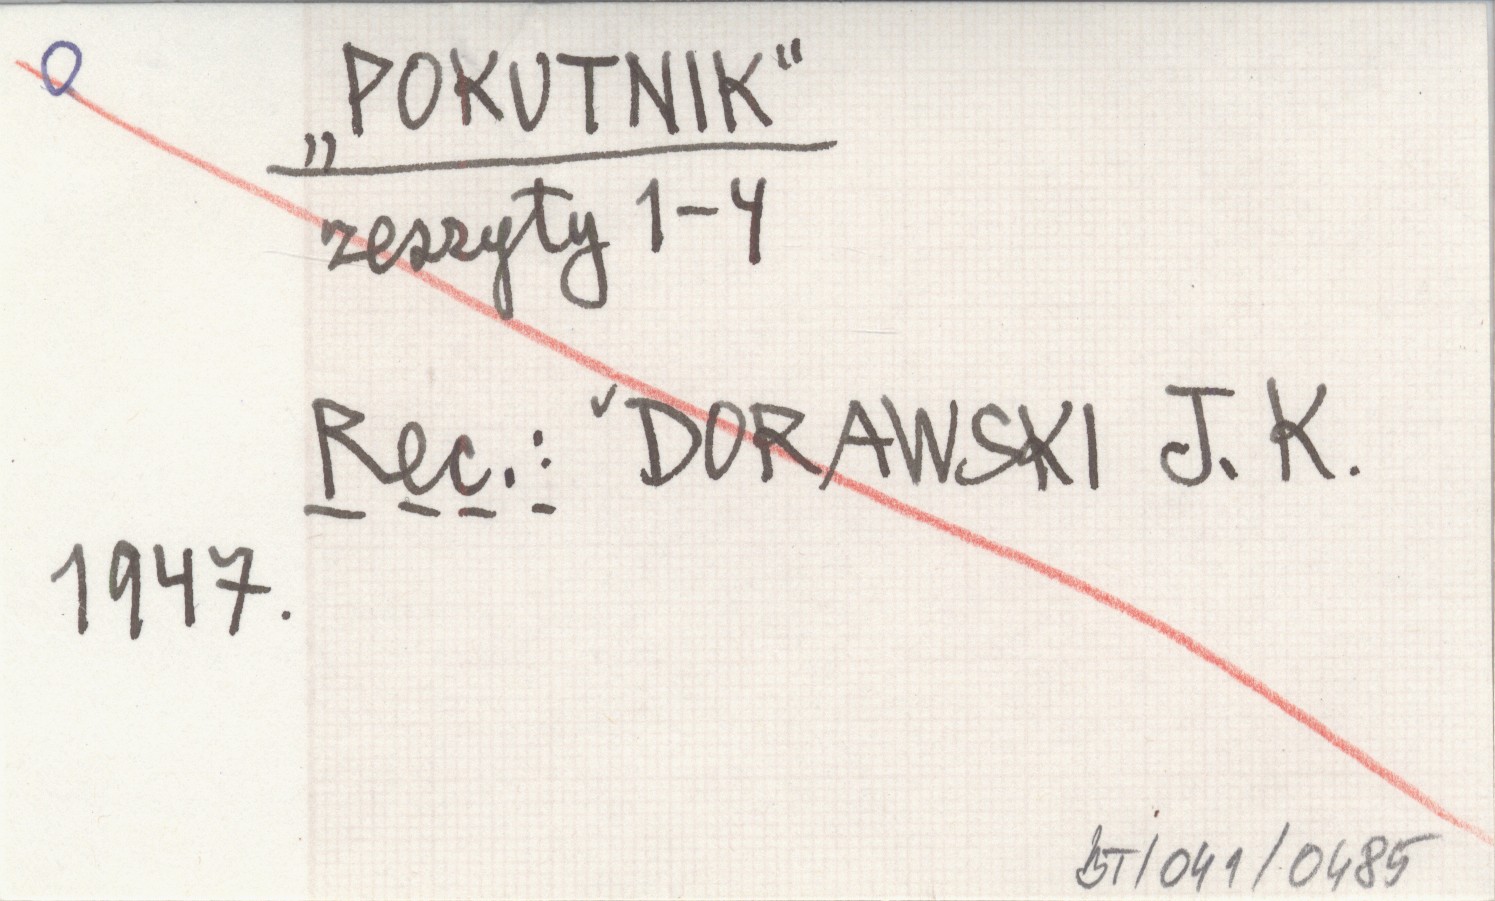 „POKUTNIK“
zeszyty 1-4
Rec.: DORAWSKI J. K.
1947.
BT/041/0485